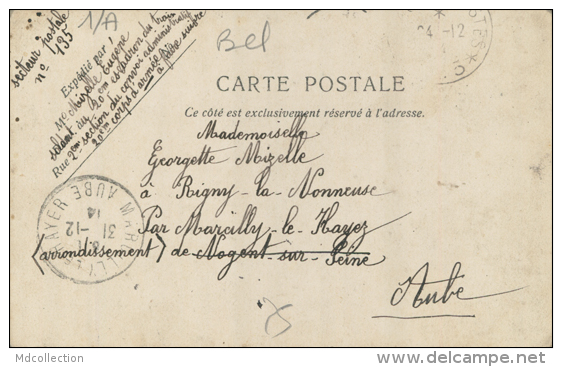 secteur postale
n° 135
1/A
Expédié par:
Mr Mizelle Eugène
soldat du 20em escadron du train
2em section du convoi administratif
20em corps d'armée
Rue
à faire suivre
Bel
24-12
CARTE POSTALE
Ce côté est exclusivement réservé à l'adresse.
Mademoiselle
Georgette Mizelle
à Rigny-la-Nonneuse
Par Marcilly-le-Hayez
(arrondissement) de Nogent-sur-Seine
Aube
MARCILLY-LE-HAYER
31-12
14
AUBE
Mdcollection
delcampe.net